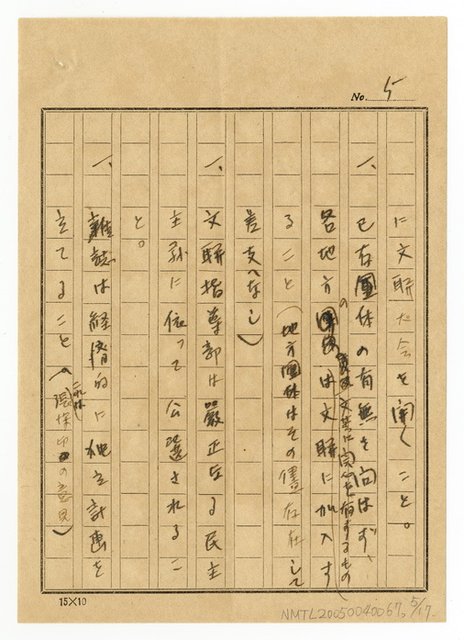 No. 5
に文聯大会を開くこと。
一、已存團体の有無を問はず、
各地方の文藝に関心を有するもの
は文聯に加入す
ること（地方團体はその儘存在して
差支へなし）
一、文聯指導部は嚴正なる民主
主義に依って公選されるこ
と。
一、雜誌は経済的に独立計畫を
立てること（これは張深切の意見）
15×10
NMTL20050040067, 5/17.